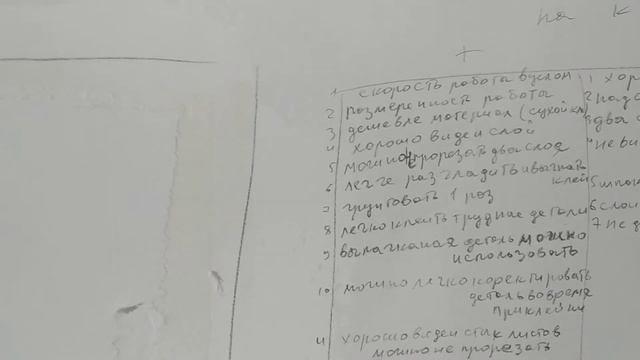 на к
+
1 скорость работы в целом
2 размеренность работы
3 дешевле материал (сухой кл
4 хорошо виден слой
5 можно не прорезать два слоя
6 легче разгладить и выгнать клей
7 грунтовать 1 раз
8 легко клеить трудные детали
9 вылажаная деталь можно использовать
10 можно легко коректировать деталь во время приклейки
11 хорошо виден стык листов можно не прорезать
1 хор
2 надо
3 два с
4 не ви
5
6 слои
7 не д